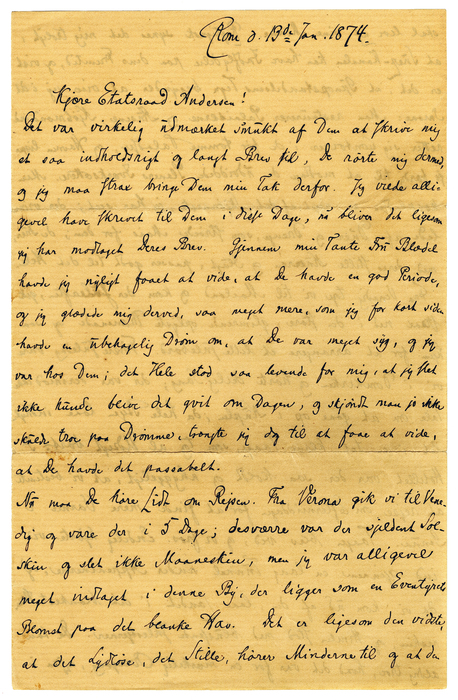 Rom d. 13de Jan. 1874.
Kjære Etatsraad Andersen!
Det var virkelig udmærket smukt af Dem at skrive mig
et saa indholdsrigt og langt Brev til, De rørte mig derved,
og jeg maa strax bringe Dem min Tak derfor. Jeg vilde alli-
gevel have skrevet til Dem i disse Dage, nu bliver det ligesom
jeg har modtaget Deres Brev. Gjennem min Tante Fru Blædel
havde jeg nyligt faaet at vide, at De havde en god Periode,
og jeg glædede mig derved, saa meget mere, som jeg for kort siden
havde en ubehagelig Drøm om, at De var meget syg, og jeg
var hos Dem; det Hele stod saa levende for mig, at jeg slet
ikke kunde blive det qvit om Dagen, og skjøndt man jo ikke
skulde troe paa Drømme, trængte jeg dog til at faae at vide,
at De havde det passabelt.
Nu maa De høre Lidt om Rejsen. Fra Verona gik vi til Vene-
dig og vare der i 5 Dage; desværre var der sjeldent Sol-
skin og slet ikke Maaneskin, men jeg var alligevel
meget indtaget i denne By, der ligger som en Eventyrets
Blomst paa det blanke Hav. Det er ligesom den vidste,
at det Lydløse, det Stille, hører Minderne til og at de